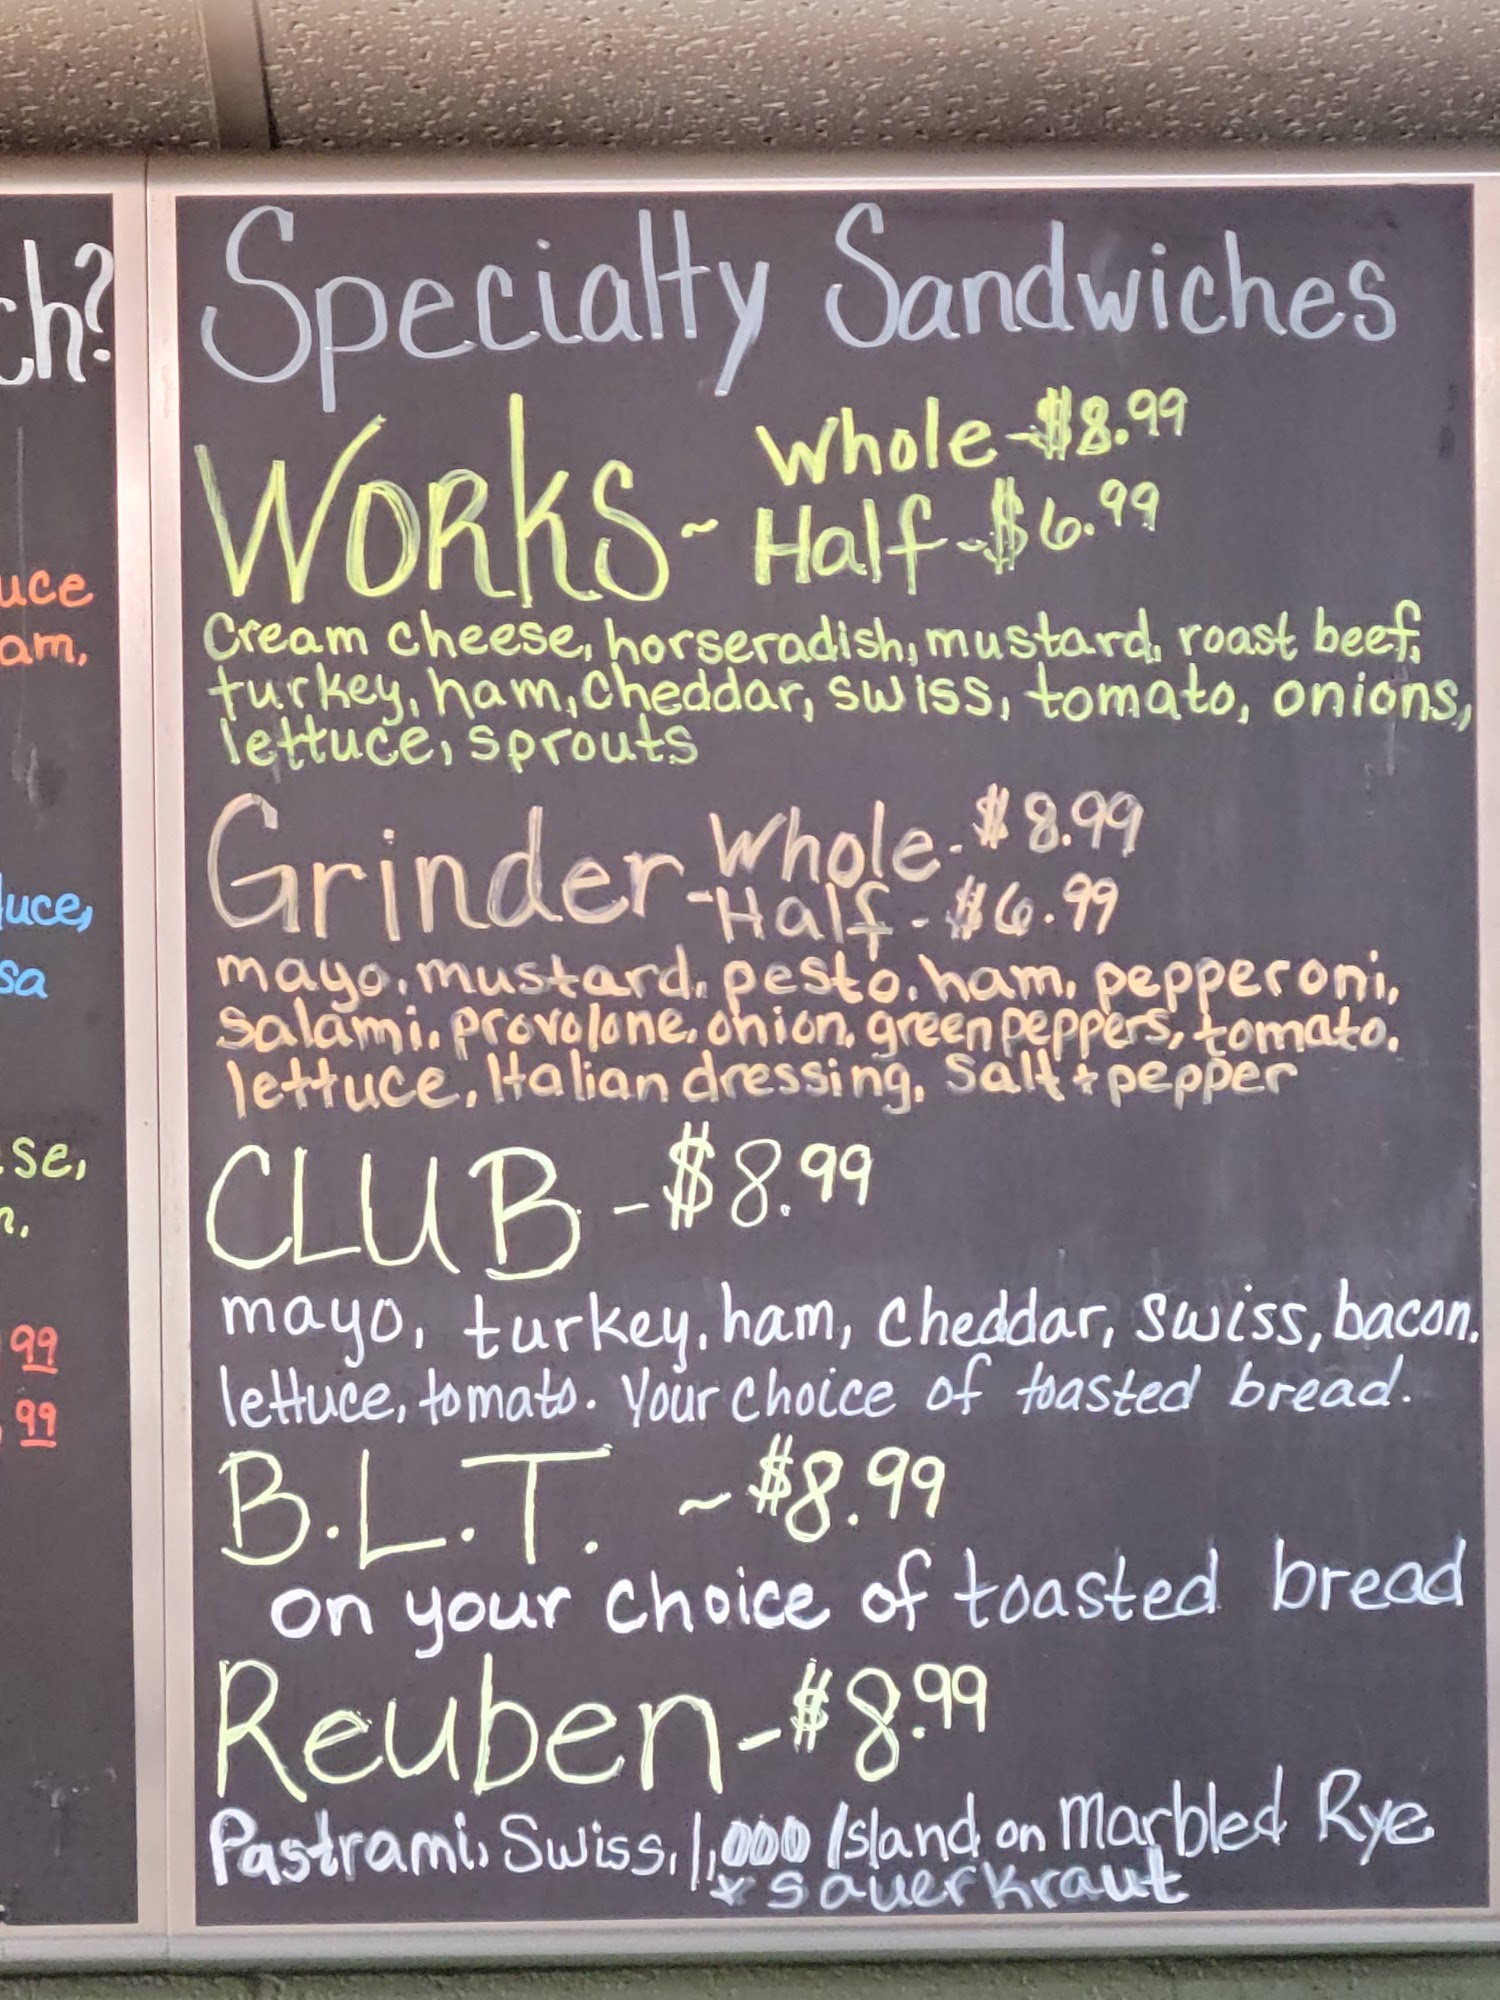 ch?
uce
am,
luce,
sa
se,
n.
99
99
Specialty Sandwiches
WORKS ~ Whole - $8.99
Half - $6.99
Cream cheese, horseradish, mustard, roast beef,
turkey, ham, cheddar, swiss, tomato, onions,
lettuce, sprouts
Grinder - Whole - $8.99
- Half - $6.99
mayo, mustard, pesto, ham, pepperoni,
salami, provolone, onion, green peppers, tomato,
lettuce, Italian dressing, Salt + pepper
CLUB - $8.99
mayo, turkey, ham, cheddar, swiss, bacon,
lettuce, tomato. Your choice of toasted bread.
B.L.T. ~ $8.99
on your choice of toasted bread
Reuben - $8.99
Pastrami, Swiss, 1,000 Island on Marbled Rye
* sauerkraut